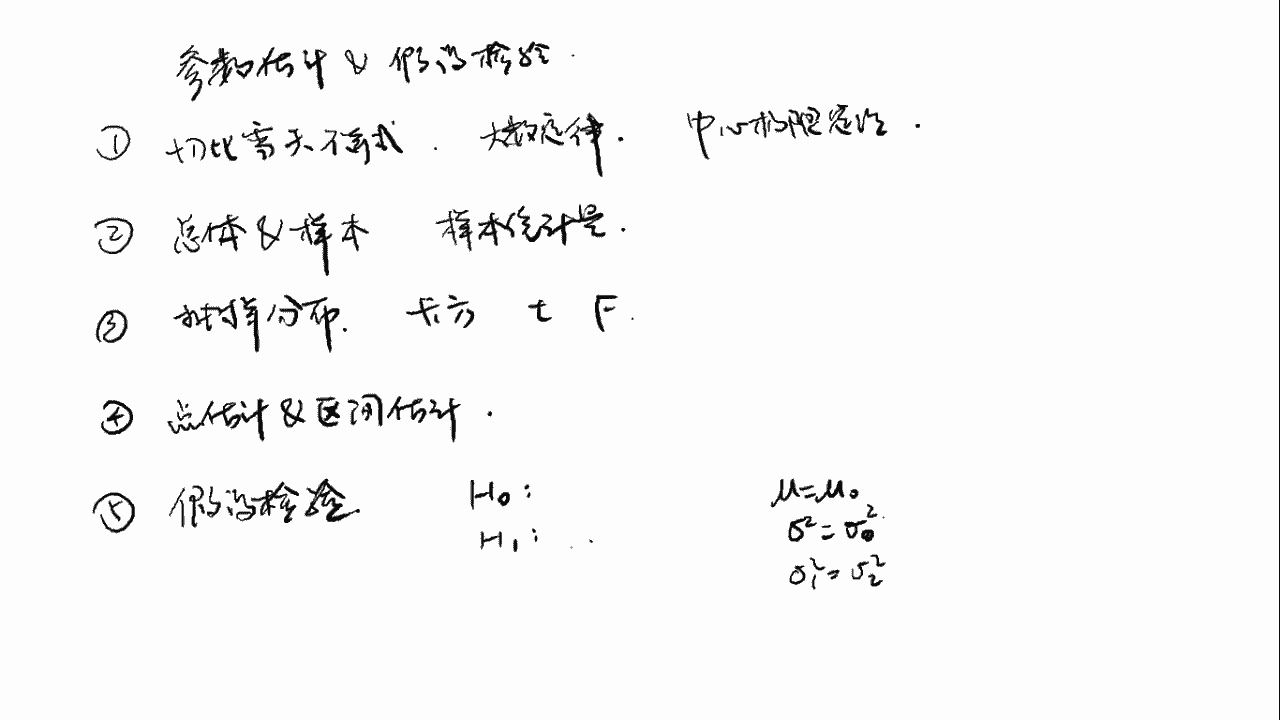 参数估计 & 假设检验.
① 切比雪夫不等式. 大数定律. 中心极限定理.
② 总体 & 样本 样本统计量.
③ 抽样分布. 卡方 t F.
④ 点估计 & 区间估计.
⑤ 假设检验. H₀: μ=μ₀
σ²=σ₀²
H₁: ..
σ₁²=σ₂²